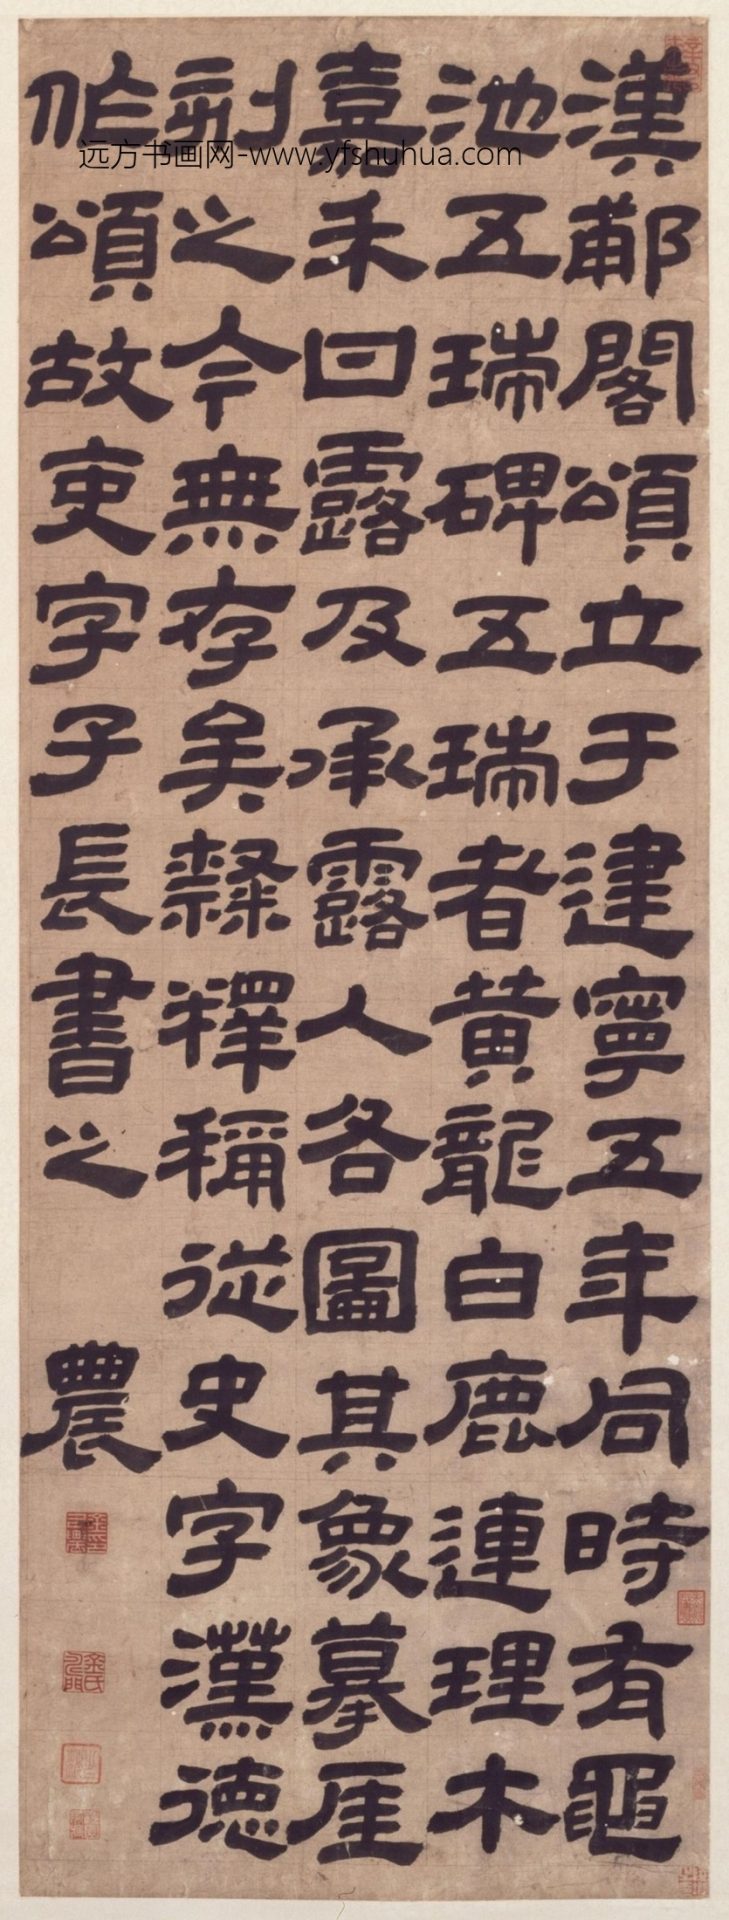 漢郙閣頌立于建寧五年同時有黽
池五瑞碑五瑞者黃龍白鹿連理木
嘉禾甘露及承露人各圖其象摹厓
刻之今無存矣隸釋稱從史字漢德
作頌故吏字子長書之 農
远方书画网-www.yfshuhua.com